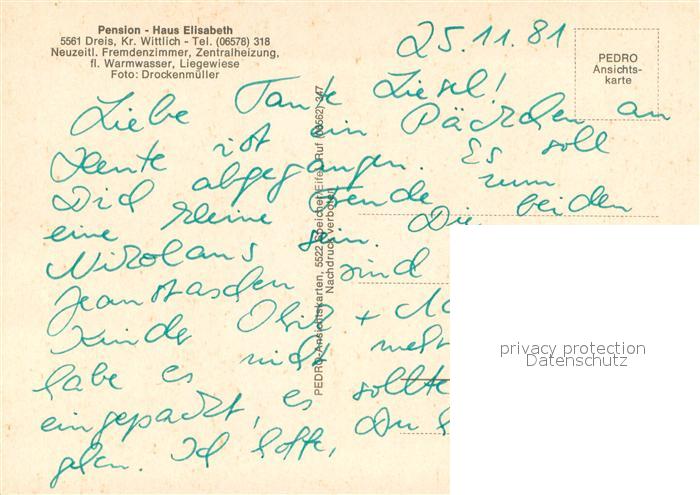 Pension - Haus Elisabeth
5561 Dreis, Kr. Wittlich - Tel. (06578) 318
Neuzeitl. Fremdenzimmer, Zentralheizung,
fl. Warmwasser, Liegewiese
Foto: Drockenmüller
PEDRO
Ansichts-
karte
25.11.81
Liebe Tante Liesel!
Heute ist ein Päckchen an
Dich abgegangen. Es soll
eine kleine Freude zum
Nikolaus sein. Die beiden
Jeanstaschen sind
Kinder Obst +
habe es nicht
eingepackt, es sollte
gelen. Ich hoffe, Du
PEDRO-Ansichtskarten, 5522 Speicher/Eifel, Ruf (06562) 347
Nachdruck verboten
privacy protection
Datenschutz